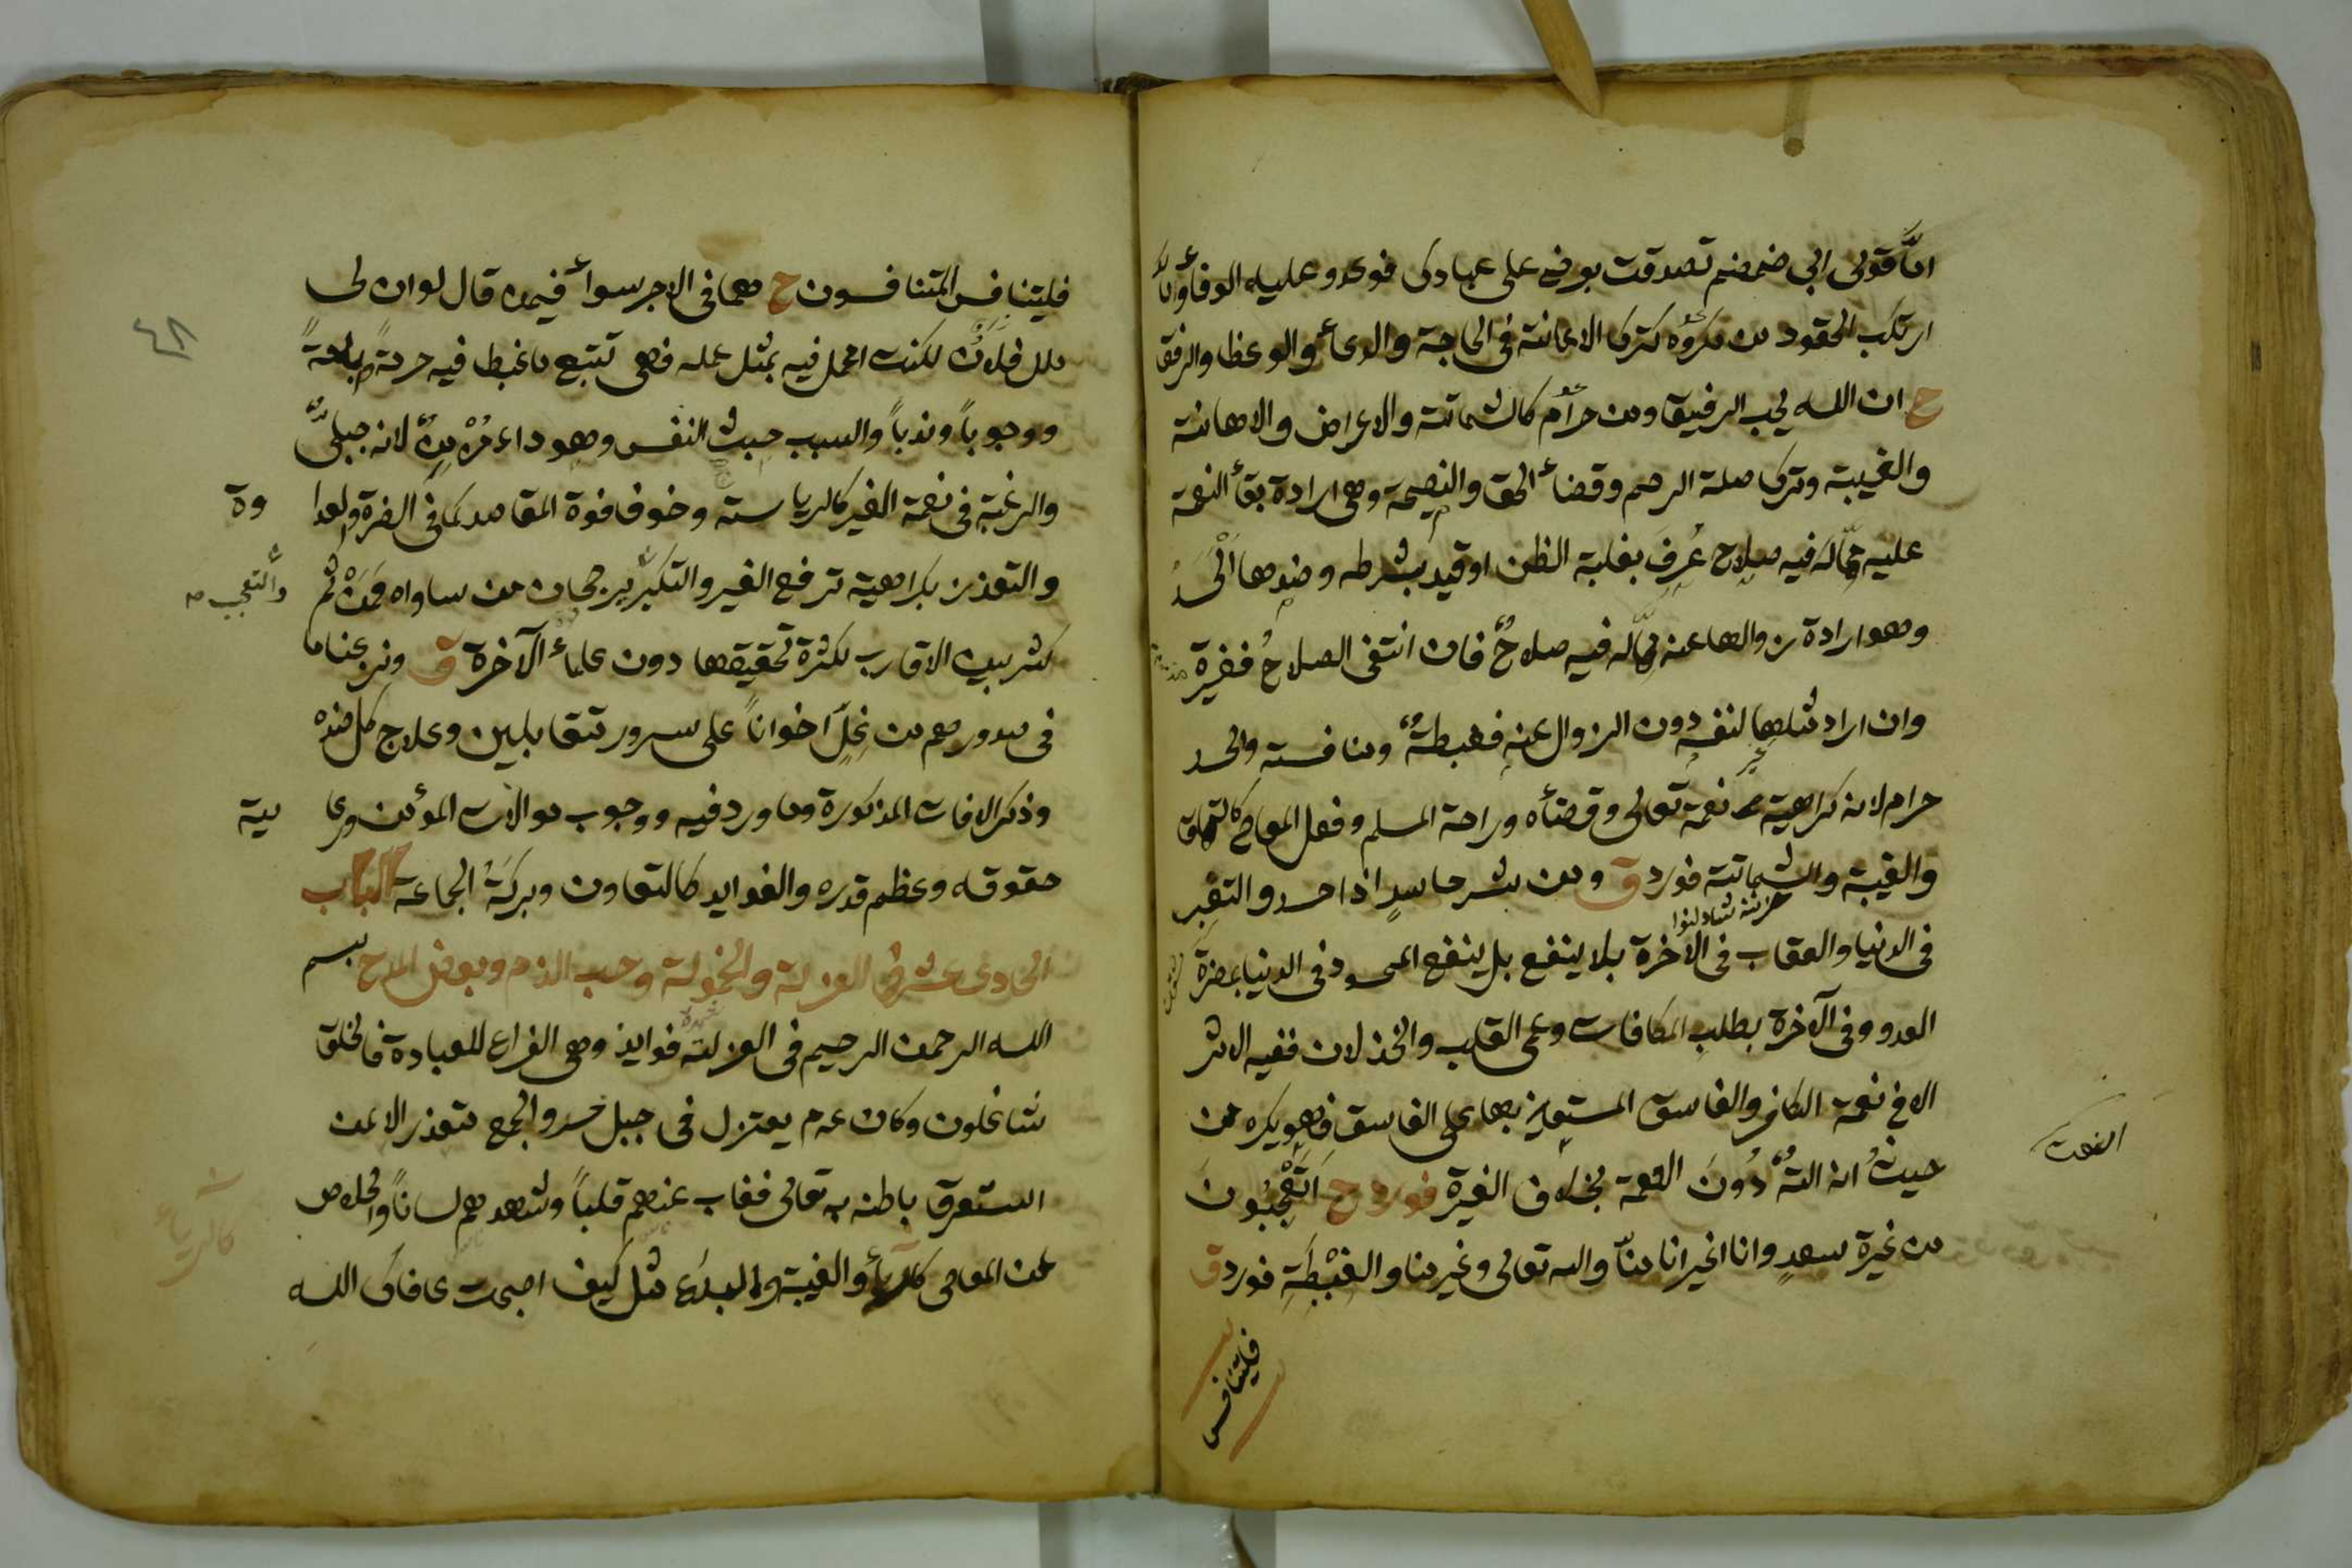 امّا قولى ابي ضمضم تصدقت بعرضي على عبادك فوعد وعليه الوفاء والا
ارتكب الحقود من مكروه كترك الاعانة في الحاجة والدعاء والوعظ والرفق
ح ان الله يحب الرفيق ومن حرام كالشماتة والاعراض والاهانة
والغيبة وترك صلة الرحم وقضاء الحق والنصيحة وهي ارادة بقاء النعمة
عليه مماله فيه صلاح عُرِفَ بغلبة الظن او قيد بشرطه وضدها الحسد
وهو ارادة زوالها عنه مماله فيه صلاحٌ فان انتفى الصلاحُ فغيرة
وان اراد مثلها لنفسه دون الزوال عنه فغبطةٌ ومنافسة والحسد
حرام لانه كراهية نعمة تعالى وقضاءه وراحة المسلم وفعل المعاصي كالتملق
والغيبة والشماتة فورد ق ومن شر حاسدٍ اذا حسد والتغير
في الدنيا والعقاب في الآخرة بلا ينفع بل ينفع المحسود في الدنيا بمضرة
العدو وفي الآخرة بطلب المكافات وعمى القلب والخذلان ففيه الاثر
الا في نعمة الكافر والفاسق المستعين بها على الفاسق فهو يكره من
حيث انه الةٌ دُونَ النعمة بخلاف الغيرة فورد ح اَتَعْجَبُونَ
من غيرة سعدٍ وانا اغير انا منا والله تعالى وغير منا والغِبْطَةِ فورد ق
النعمة
فليتنافس
فليتنافس المتنافسون ح هما في الاجر سواء فيمن قال لو ان لى
مال فلان لكنت اعمل فيه بمثل عمله فهى تتبع ما غبط فيه حرمةً واباحةً
ووجوباً وندباً والسبب خبث النفس وهو داء مُزْمِنٌ لانه جبلىٌّ
والرغبة في نعمة الغير كالرياسة وخوف فوة المقاصد كما في الضرة والعدا
وة
والتعزز بكراهية ترفع الغير والتكبر برجحان من ساواه فَمِنْ ثم
والتعجب صح
كثر بين الاقارب لكثرة تحقيقها دون علماء الآخرة ق ونزعنا ما
في صدورهم من غِلٍّ اخواناً على سرور متقابلين وعلاج كل ضده
وذكر الافات المذكورة وما ورد فيه ووجوب موالات المؤمن ورعا
ية
حقوقه وعظم قدره والفوايد كالتعاون وبركة الجماعة الباب
الحادى عشر في العزلة والخمولة وحب الذم وبغض المدح بسم
الله الرحمن الرحيم في العزلة فوايد وهى الفراغ للعبادة فالخلق
شاغلون وكان عم يعتزل في جبل حرو والجمع متعذر الا لمن
استغرق باطنه به تعالى فغاب عنهم قلباً وشهدهم لساناً والخلاص
عن المعاصى كالرياء والغيبة والبدع مثل كيف اصبحت عافاك الله
كالرياء
٤٨